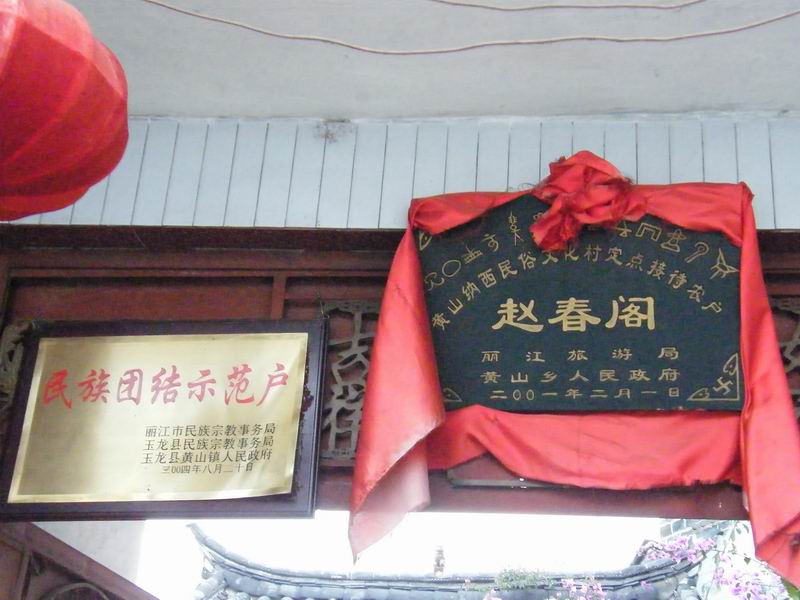 民族团结示范户
丽江市民族宗教事务局
玉龙县民族宗教事务局
玉龙县黄山镇人民政府
二00四年八月二十日
黄山纳西民俗文化村定点接待农户
赵春阁
丽江旅游局
黄山乡人民政府
二00一年二月一日